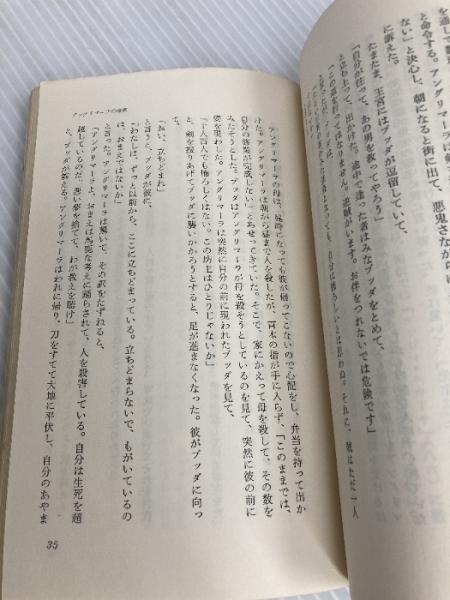 を通して数
と命令する。アングリマーラは
ない」と決心し、朝になると街に出て、悪鬼さながら
に訴えた。
たまたま、王宮にはブッダが逗留していて、
「自分が往って、あの男を救ってやろう」
と立ち上って、出かけた。途中で逢った者はみなブッダをとめて、
「この道を行ってはなりません。逆賊がいます。お伴をつれないでは危険です」
アングリマーラの母は、
時になっても彼が帰ってこないので心配をし、弁当を持って出か
けた。アングリマーラは朝から昼まで人を殺したが、百本の指が手に入らず、「このままでは、
自分の修業が完成しない」とあせってきていた。そこで、家にかえって母を殺して、その数を
みたそうとした。ブッダはアングリマーラが母を殺そうとしているのを見て、突然に彼の前に
姿を現わした。アングリマーラは突然に自分の前に現われたブッダを見て、
「十人百人でも怖ろしくはない。この坊主はひとりじゃないか」
と、剣を振りあげてブッダに襲いかかろうとすると、足が進まなくなった。彼がブッダに向っ
「おい、立ちどまれ」
と言うと、ブッダが彼に、
「わたしは、ずっと以前から、ここに立ちどまっている。立ちどまらないで、もがいているの
は、おまえではないか」
と言った。アングリマーラは驚いて、その訳をたずねると、
「アングリマーラよ、おまえは馬鹿な考えに踊らされて、人を殺害している。自分は生死を超
越しているのだ。悪い夢を捨てて、わが教えを聴け」
と、ブッダが答える。アングリマーラはわれに帰り、刀をすてて大地に平伏し、自分のあやま
35